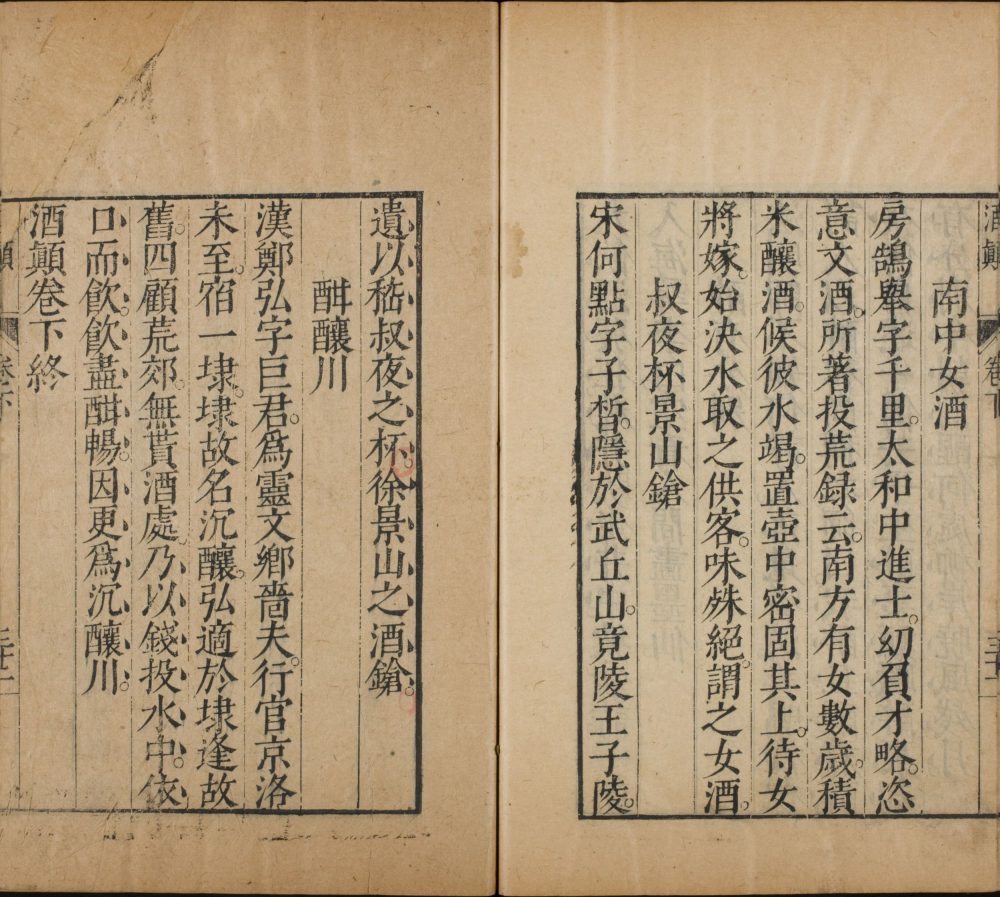 酒顛
卷下
南中女酒
房鵠舉字千里。太和中進士。幼負才略。恣
意文酒。所著投荒録云。南方有女數歲。積
米釀酒。候彼水竭。置壺中密固其上。待女
將嫁。始決水取之供客。味殊絕。謂之女酒。
叔夜杯景山鎗
宋何點字子晳。隱於武丘山。竟陵王子陵。
遺以嵇叔夜之杯。徐景山之酒鎗。
酣釀川
漢鄭弘字巨君。爲靈文鄉嗇夫。行官京洛
未至。宿一埭。埭故名沉釀。弘適於埭逢故
舊。四顧荒郊。無貰酒處。乃以錢投水中。依
口而飲。飲盡酣暢。因更爲沉釀川。
酒顛卷下終
顛
卷下